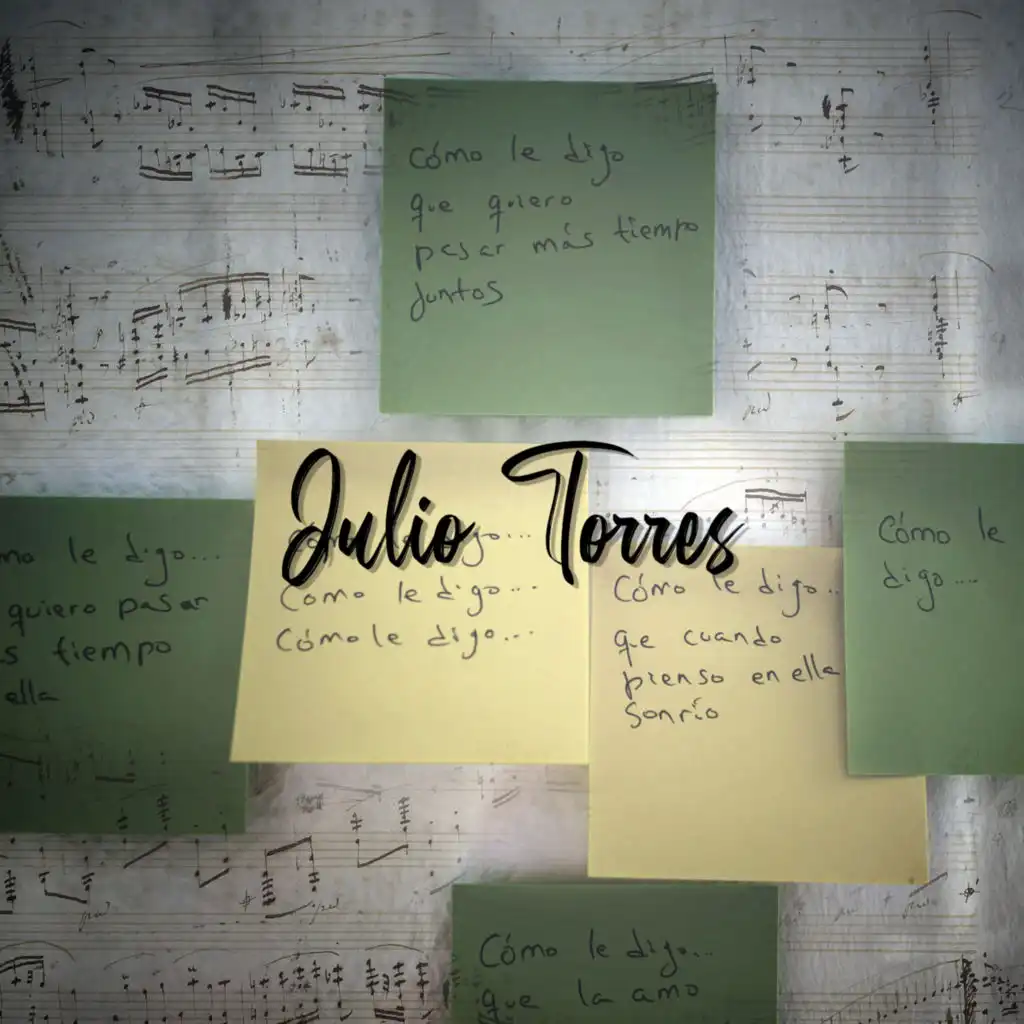 cómo le digo
que quiero
pasar más tiempo
juntos
mo le digo...
quiero pasar
s tiempo
ella
Julio Torres
Cómo le digo...
Cómo le digo...
Cómo le digo...
que cuando
pienso en ella
sonrío
Cómo le
digo...
Cómo le digo...
que la amo